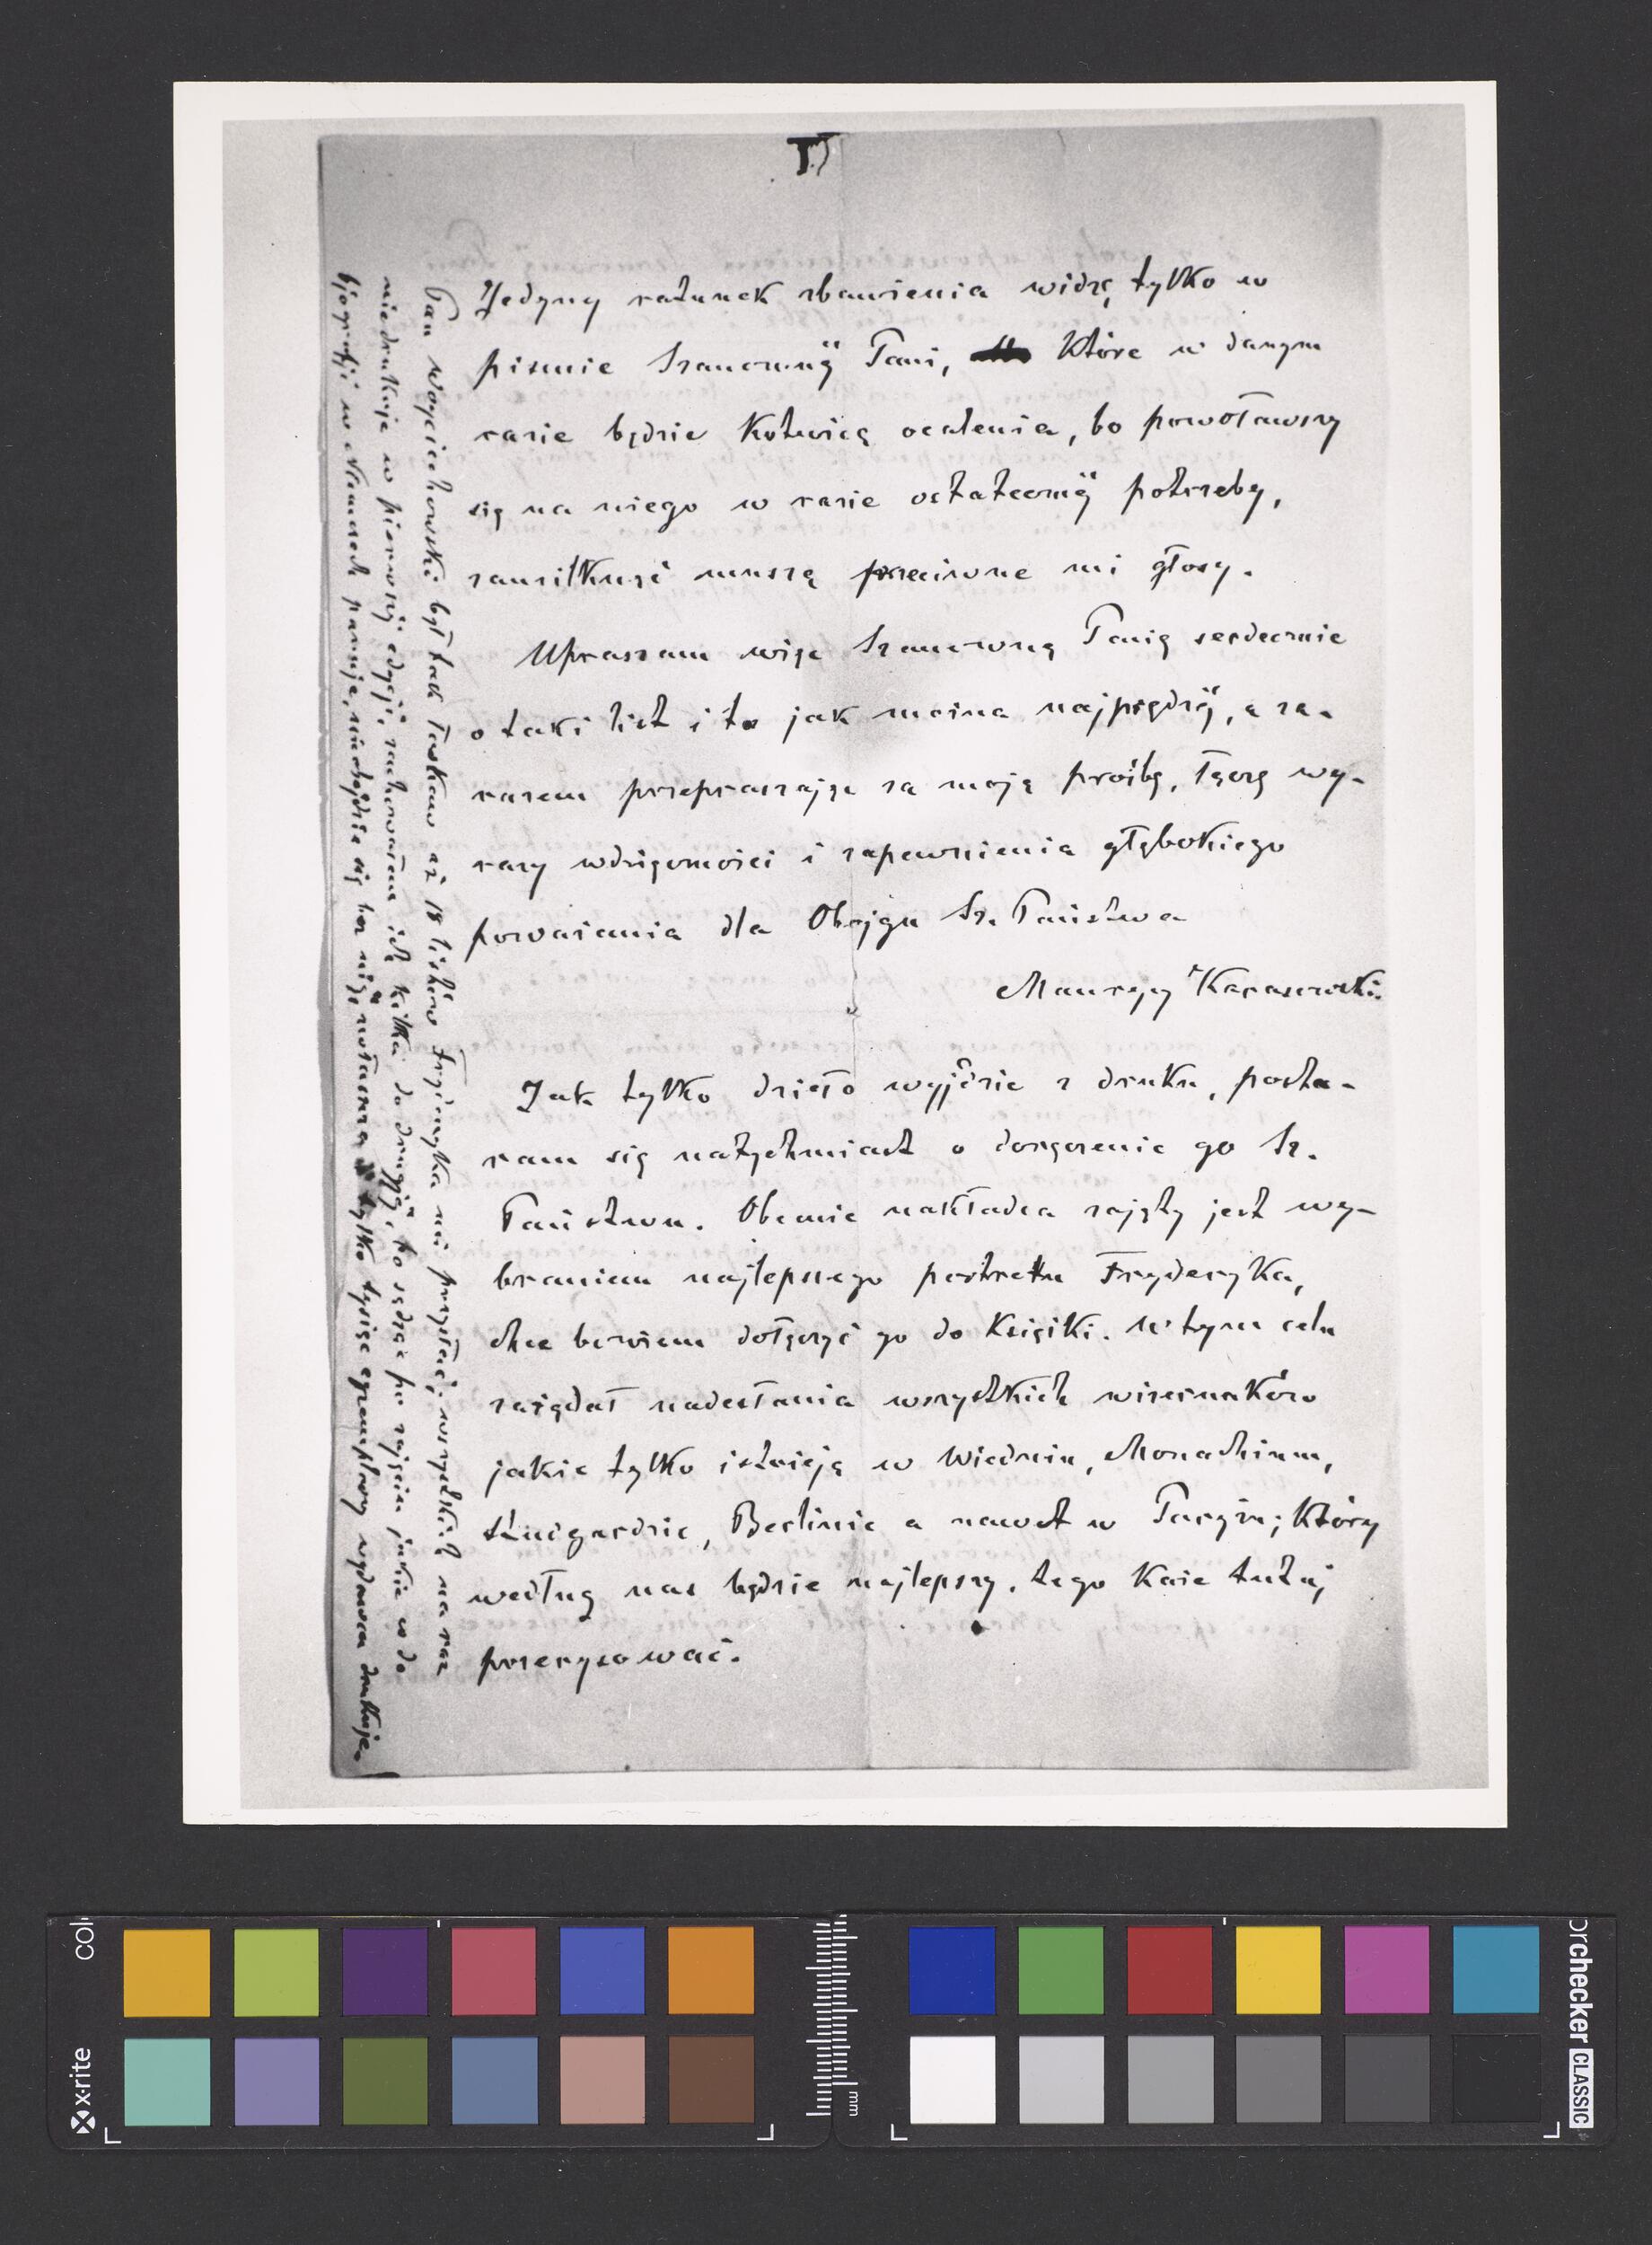 Jedyny ratunek zbawienia widzę tylko w
piśmie Szanownéj Pani, które w danym
razie będzie kotwicą ocalenia, bo powoławszy
się na niego w razie ostatecznéj potrzeby,
zamilknąć muszą przeciwne mi głosy.
Upraszam więc Szanowną Panią serdecznie
o taki list i to jak można najprędzéj, a za-
razem przepraszając za moją prośbę, łączę wy-
razy wdzięczności i zapewnienia głębokiego
poważania dla Obojga Sz. Państwa
Maurycy Karasowski.
Jak tylko dzieło wyjdzie z druku, posta-
ram się natychmiast o doręczenie go Sz.
Państwu. Obecnie nakładca zajęty jest wy-
braniem najlepszego portretu Fryderyka,
chce bowiem dołączyć go do książki. W tym celu
zażądał nadesłania wszystkich wizerunków
jakie tylko istnieją w Wiedniu, Monachium,
Sztutgardzie, Berlinie a nawet w Paryżu; który
według nas będzie najlepszy, tego każe tutaj
przerysować.
Pan Wojciechowski był tak łaskaw aż 18 listów Fryderyka mi przysłać; wszystkich na raz
nie drukuję w pierwszéj edycji, zachowałem ich kilka do drugiéj, bo sądzę po zajęciu jakie w do
biografji w Niemczech panuje, nie obejdzie się bez niéj, zwłaszcza że tylko tysiąc egzemplarzy wydawca drukuje.
x-rite
colorchecker CLASSIC
mm